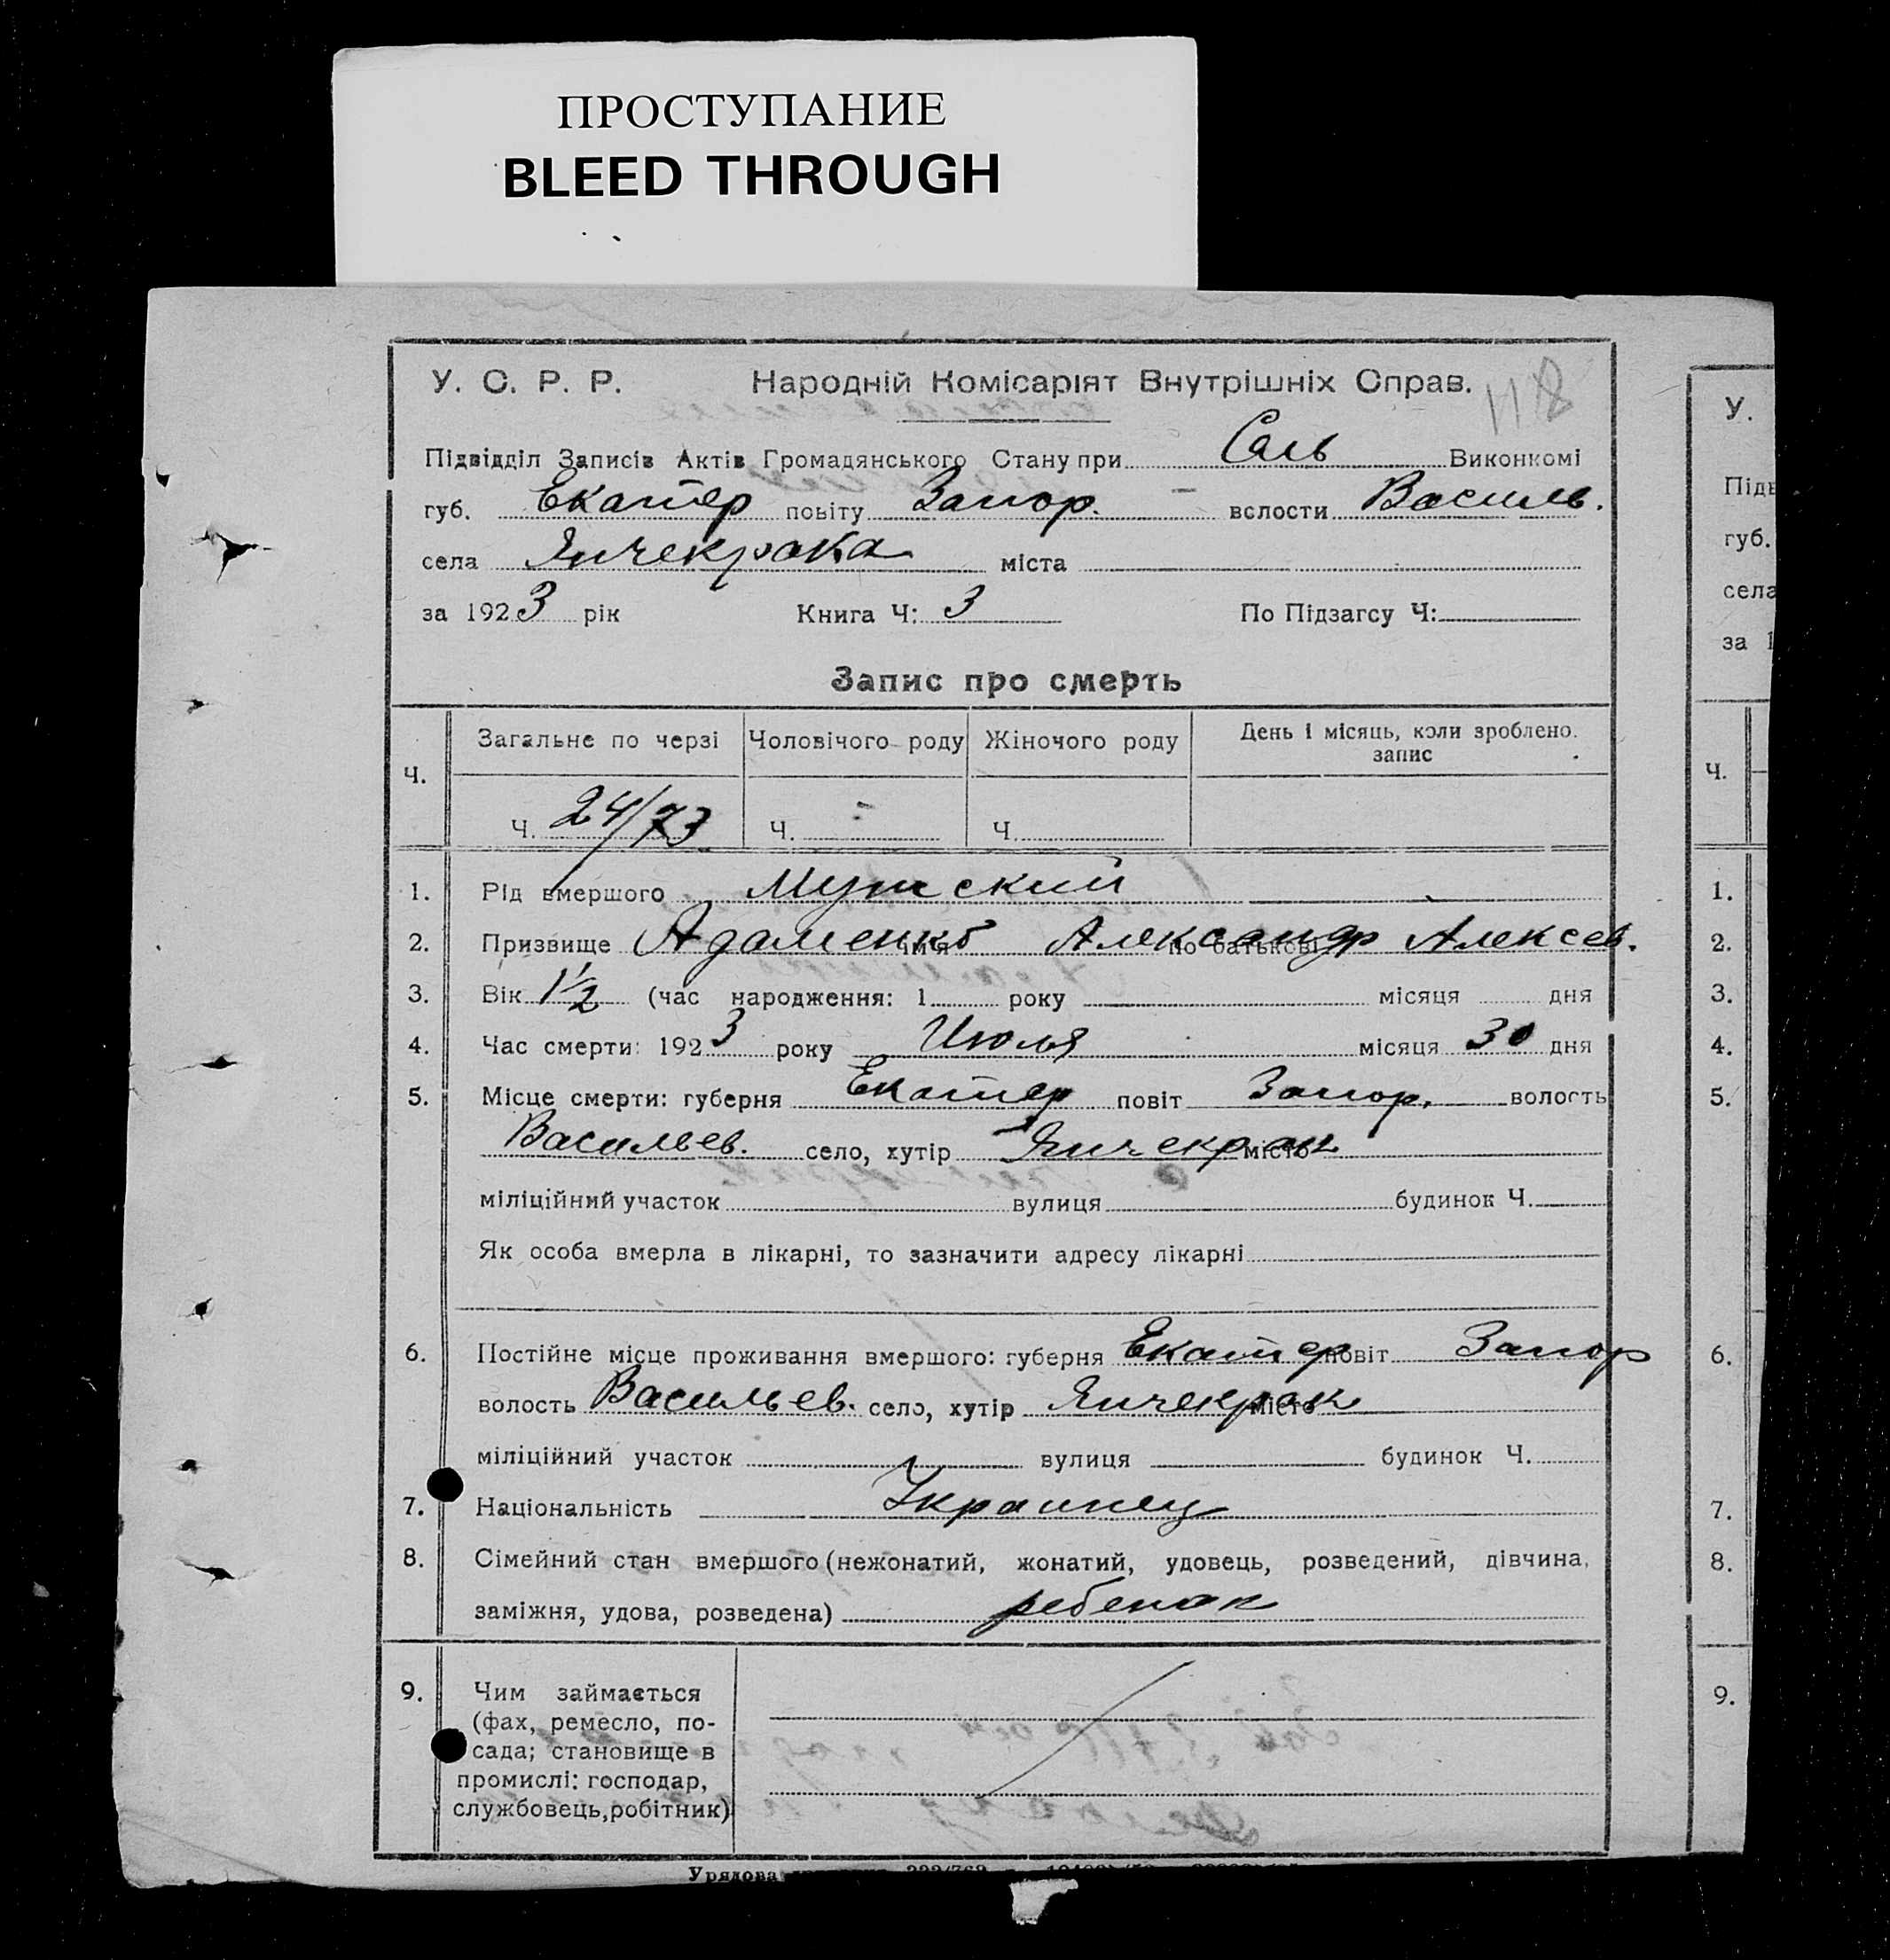 ПРОСТУПАНИЕ
BLEED THROUGH
У. С. Р. Р. Народній Комісаріят Внутрішніх Справ.
Підвідділ Записів Актів Громадянського Стану при Виконкомі
губ. Екатер повіту Запор. волости Василь.
села Янчекрака міста
за 1923 рік Книга Ч: 3 По Підзагсу Ч:
Запис про смерть
Ч. Загальне по черзі Чоловічого роду Жіночого роду День і місяць, коли зроблено. запис
Ч. 24/73 Ч. Ч.
1. Рід вмершого Мужский
2. Призвище Адаменко ім'я Александр по батькові Алексеев.
3. Вік 1½ (час народження: 1 року місяця дня
4. Час смерти: 1923 року Июля місяця 30 дня
5. Місце смерти: губерня Екатер повіт Запор. волость
Васильев. село, хутір Янчекрак місто
міліційний участок вулиця будинок Ч.
Як особа вмерла в лікарні, то зазначити адресу лікарні
6. Постійне місце проживання вмершого: губерня Екатер повіт Запор
волость Васильев. село, хутір Янчекрак місто
міліційний участок вулиця будинок Ч.
7. Національність Украинец
8. Сімейний стан вмершого (нежонатий, жонатий, удовець, розведений, дівчина,
заміжня, удова, розведена) ребенок
9. Чим займається
(фах, ремесло, по-
сада; становище в
промислі: господар,
службовець, робітник)
Урядова
У.
Підв
губ.
села
за 1
Ч.
1.
2.
3.
4.
5.
6.
7.
8.
9.